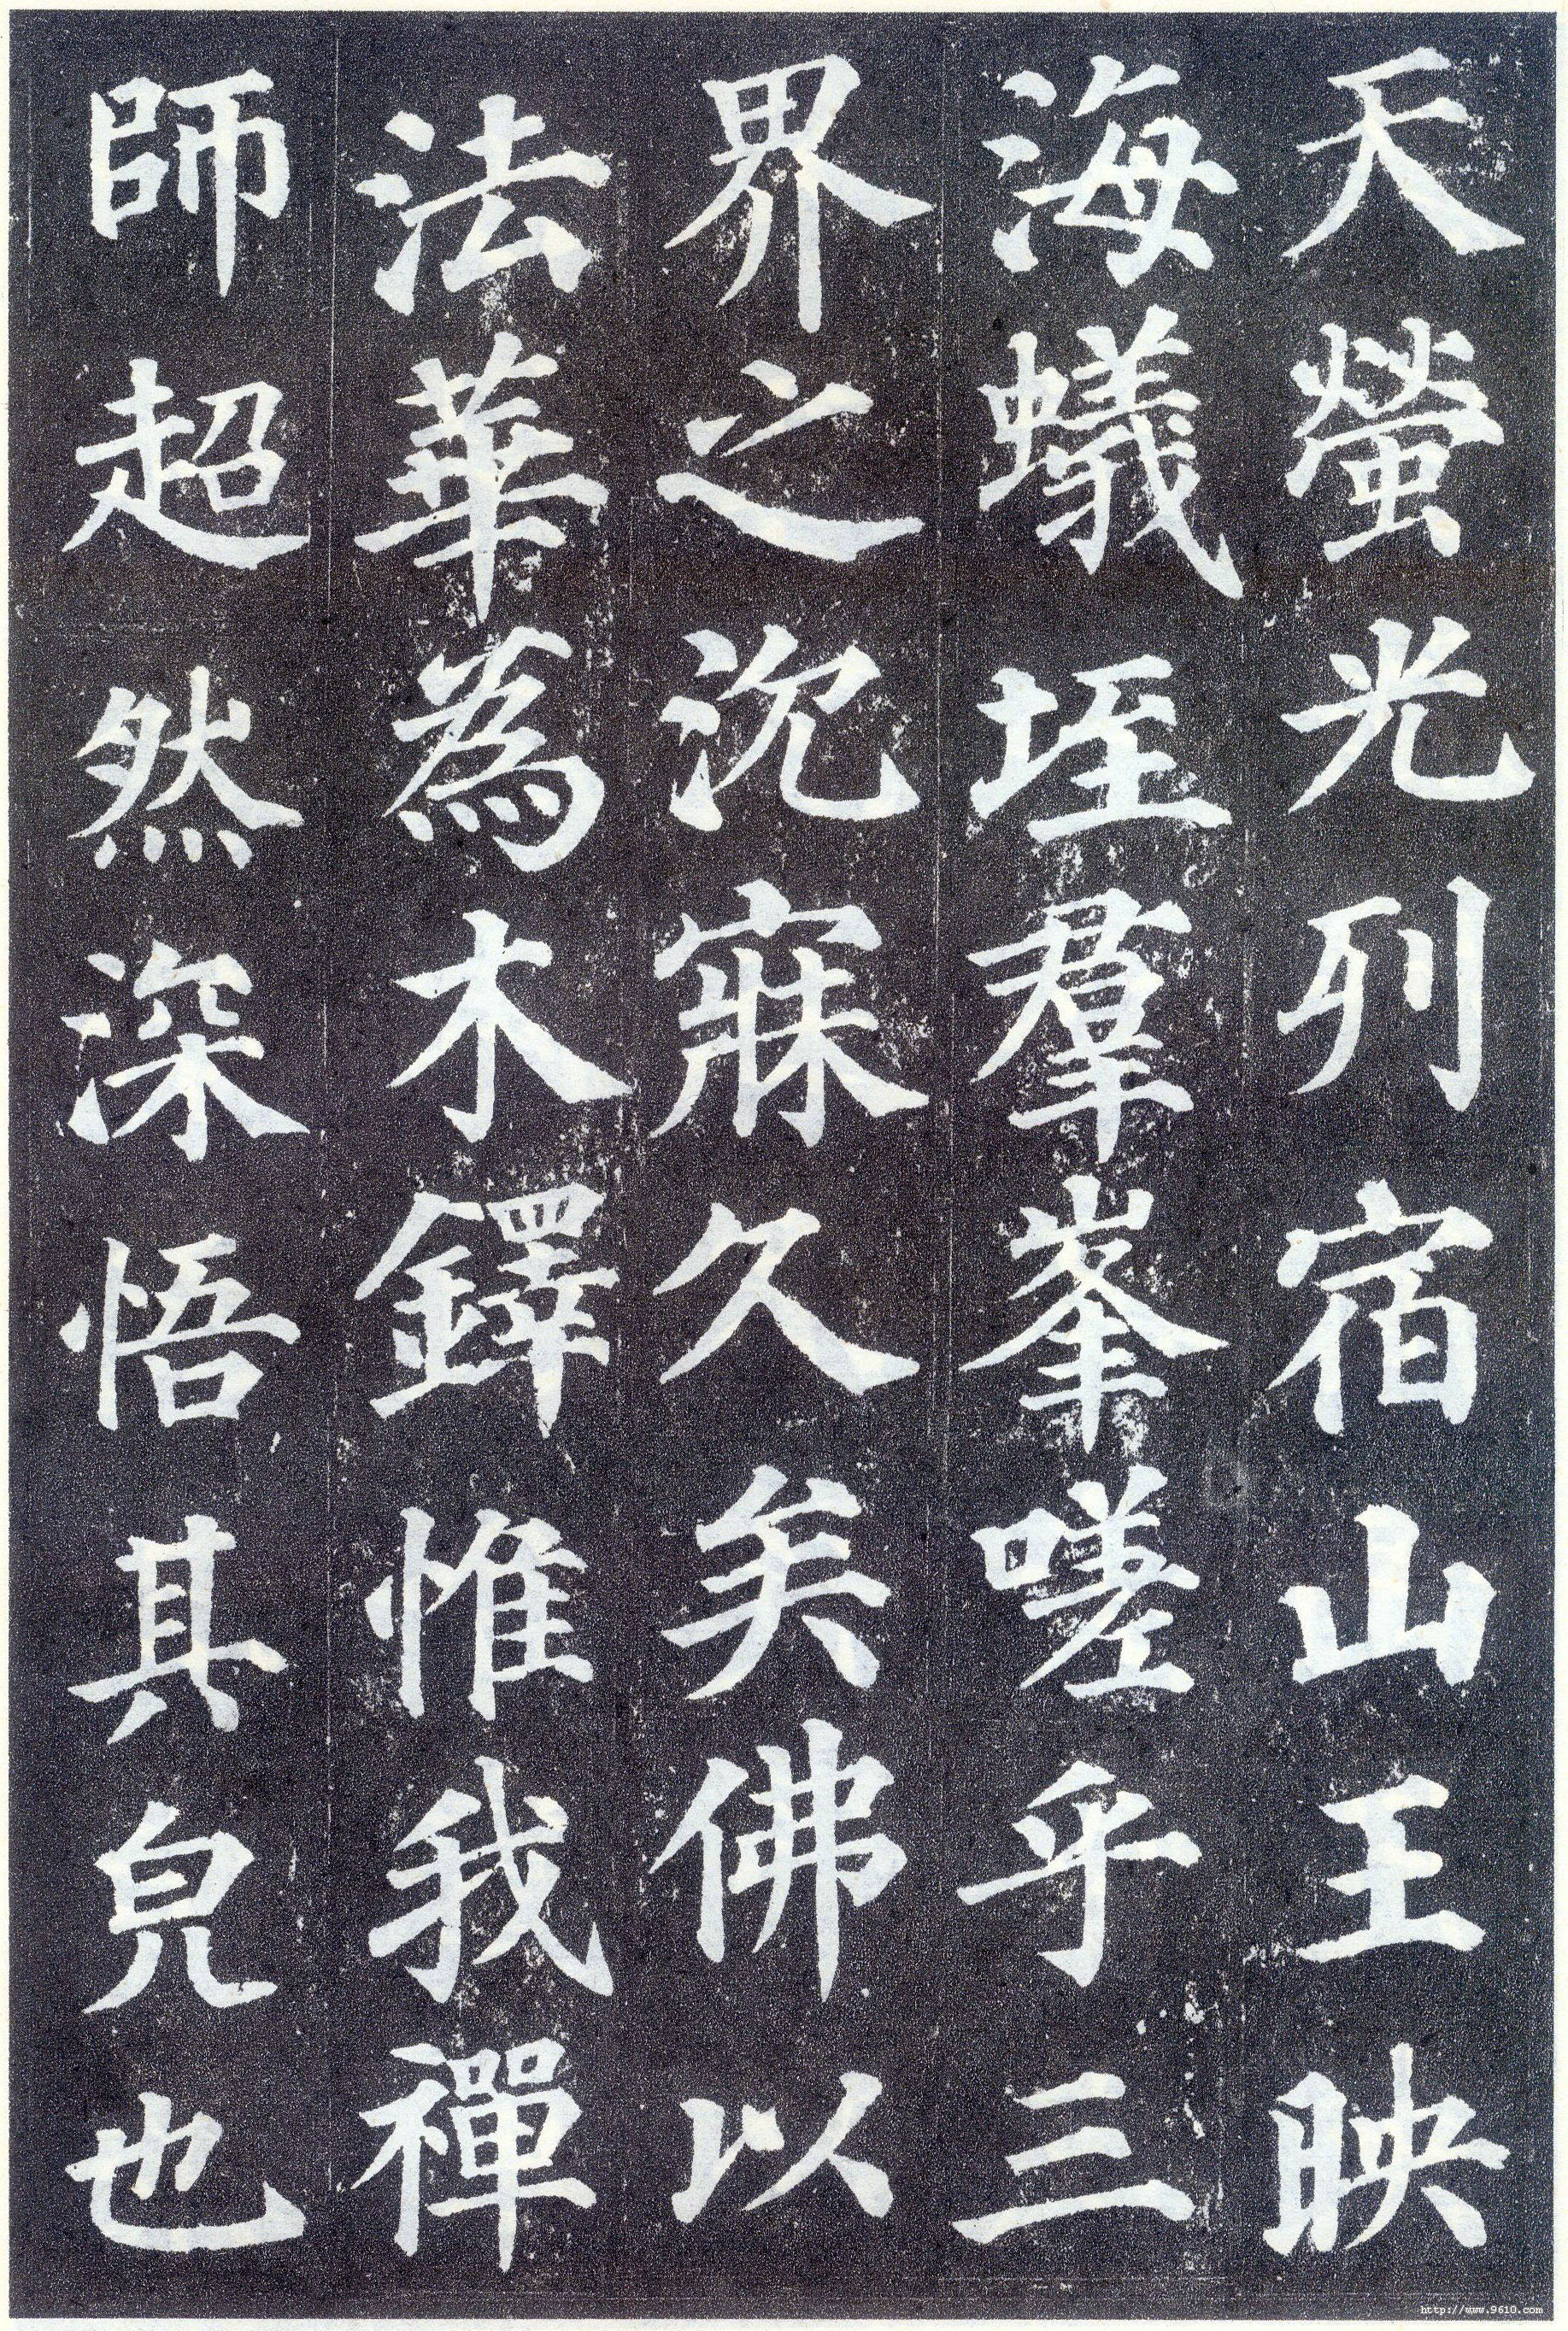 天螢光列宿山王映
海蟻垤羣峯嗟乎三
界之沉寐久矣佛以
法華為木鐸惟我禪
師超然深悟其皃也
http://www.9610.com